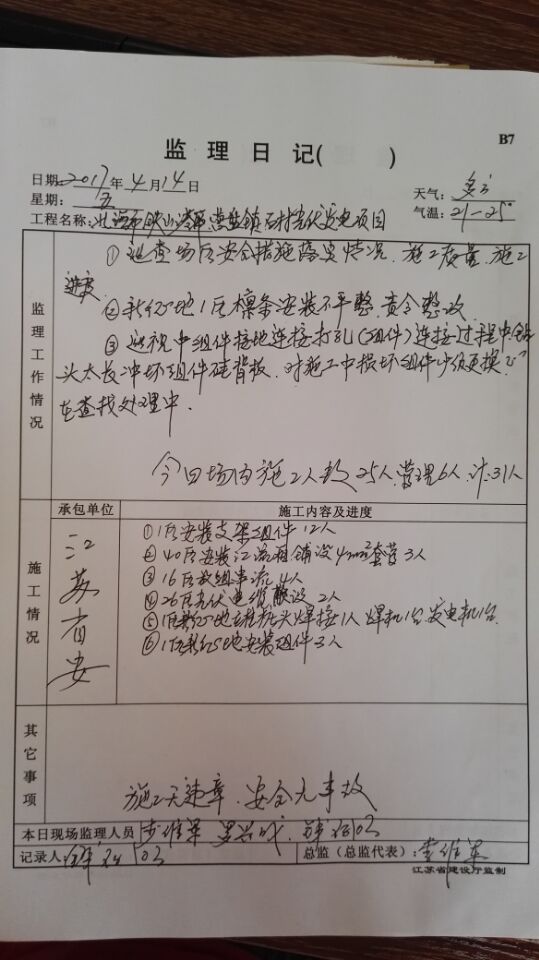 B7
监 理 日 记( )
日期: 2017 年 4 月 14 日
星期: 五
天气: 多云
气温: 21-25°
工程名称: 镇 村光伏发电项目
监理工作情况
① 巡查场区安全措施落实情况、施工质量、施工
进度
② 1区檩条安装不平整,责令整改
③ 巡视中组件接地连接打孔(组件)连接过程中钻
头太长冲坏组件硅背板,对施工中损坏组件必须更换,
在查找处理中.
今日场内施工人数25人,管理6人,计:31人
施工情况
承包单位
施工内容及进度
江苏省安
① 1区安装支架组件 12人
② 40区安装汇流箱铺设4mm²套管 3人
③ 16区组串 4人
④ 26区光伏电缆敷设 2人
⑤ 1区 桩头焊接1人 焊机1台.发电机1台.
⑥ 1区 安装组件 3人
其它事项
施工无违章、安全无事故
本日现场监理人员:
记录人:
总监(总监代表):
江苏省建设厅监制